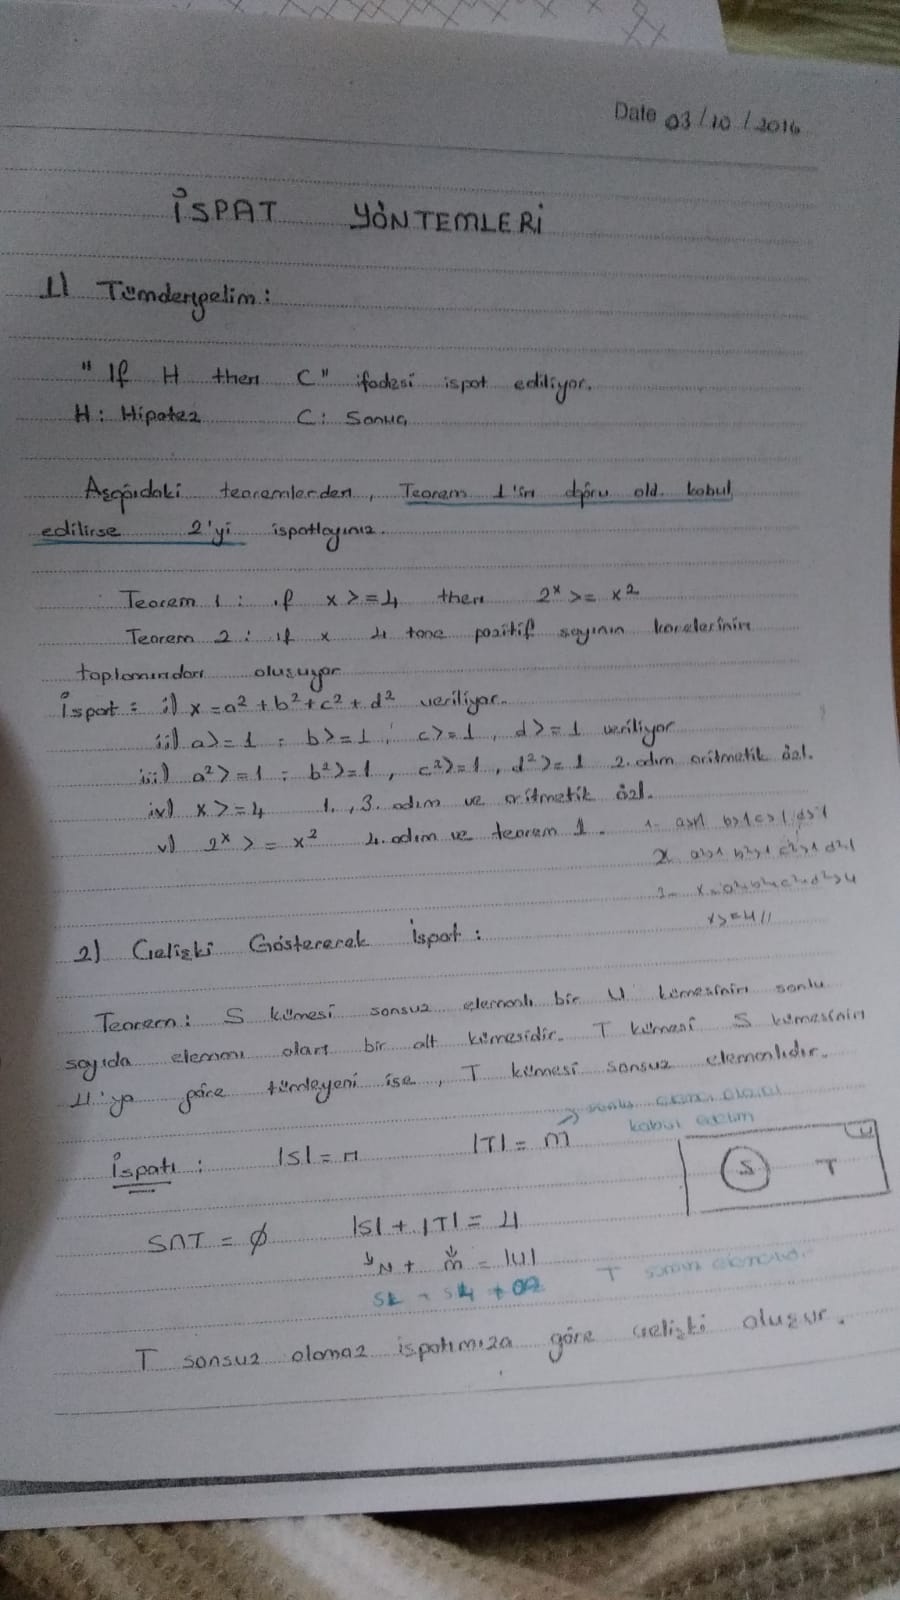 Date 03/10/2016
İSPAT YÖNTEMLERİ
1) Tümdengelim:
"If H then C" ifadesi ispat ediliyor.
H: Hipotez C: Sonuç
Aşağıdaki teoremlerden, Teorem 1'in doğru old. kabul
edilirse 2'yi ispatlayınız.
Teorem 1: if x >= 4 then 2ˣ >= x²
Teorem 2: if x 4 tane pozitif sayının karelerinin
toplamından oluşuyor
İspat: i) x = a² + b² + c² + d² veriliyor.
ii) a >= 1, b >= 1, c >= 1, d >= 1 veriliyor
iii) a² >= 1, b² >= 1, c² >= 1, d² >= 1 2. adım aritmetik özl.
iv) x >= 4 1., 3. adım ve aritmetik özl.
v) 2ˣ >= x² 4. adım ve teorem 1.
x >= 4 //
2) Çelişki Göstererek İspat:
Teorem: S kümesi sonsuz elemanlı bir U kümesinin sonlu
sayıda elemanı olan bir alt kümesidir. T kümesi S kümesinin
U'ya göre tümleyeni ise, T kümesi sonsuz elemanlıdır.
kabul edelim
İspatı: |S| = n |T| = m
U
S T
S∩T = ∅ |S| + |T| = U
N + m = |U|
T
T sonsuz olamaz ispatımıza göre çelişki oluşur.